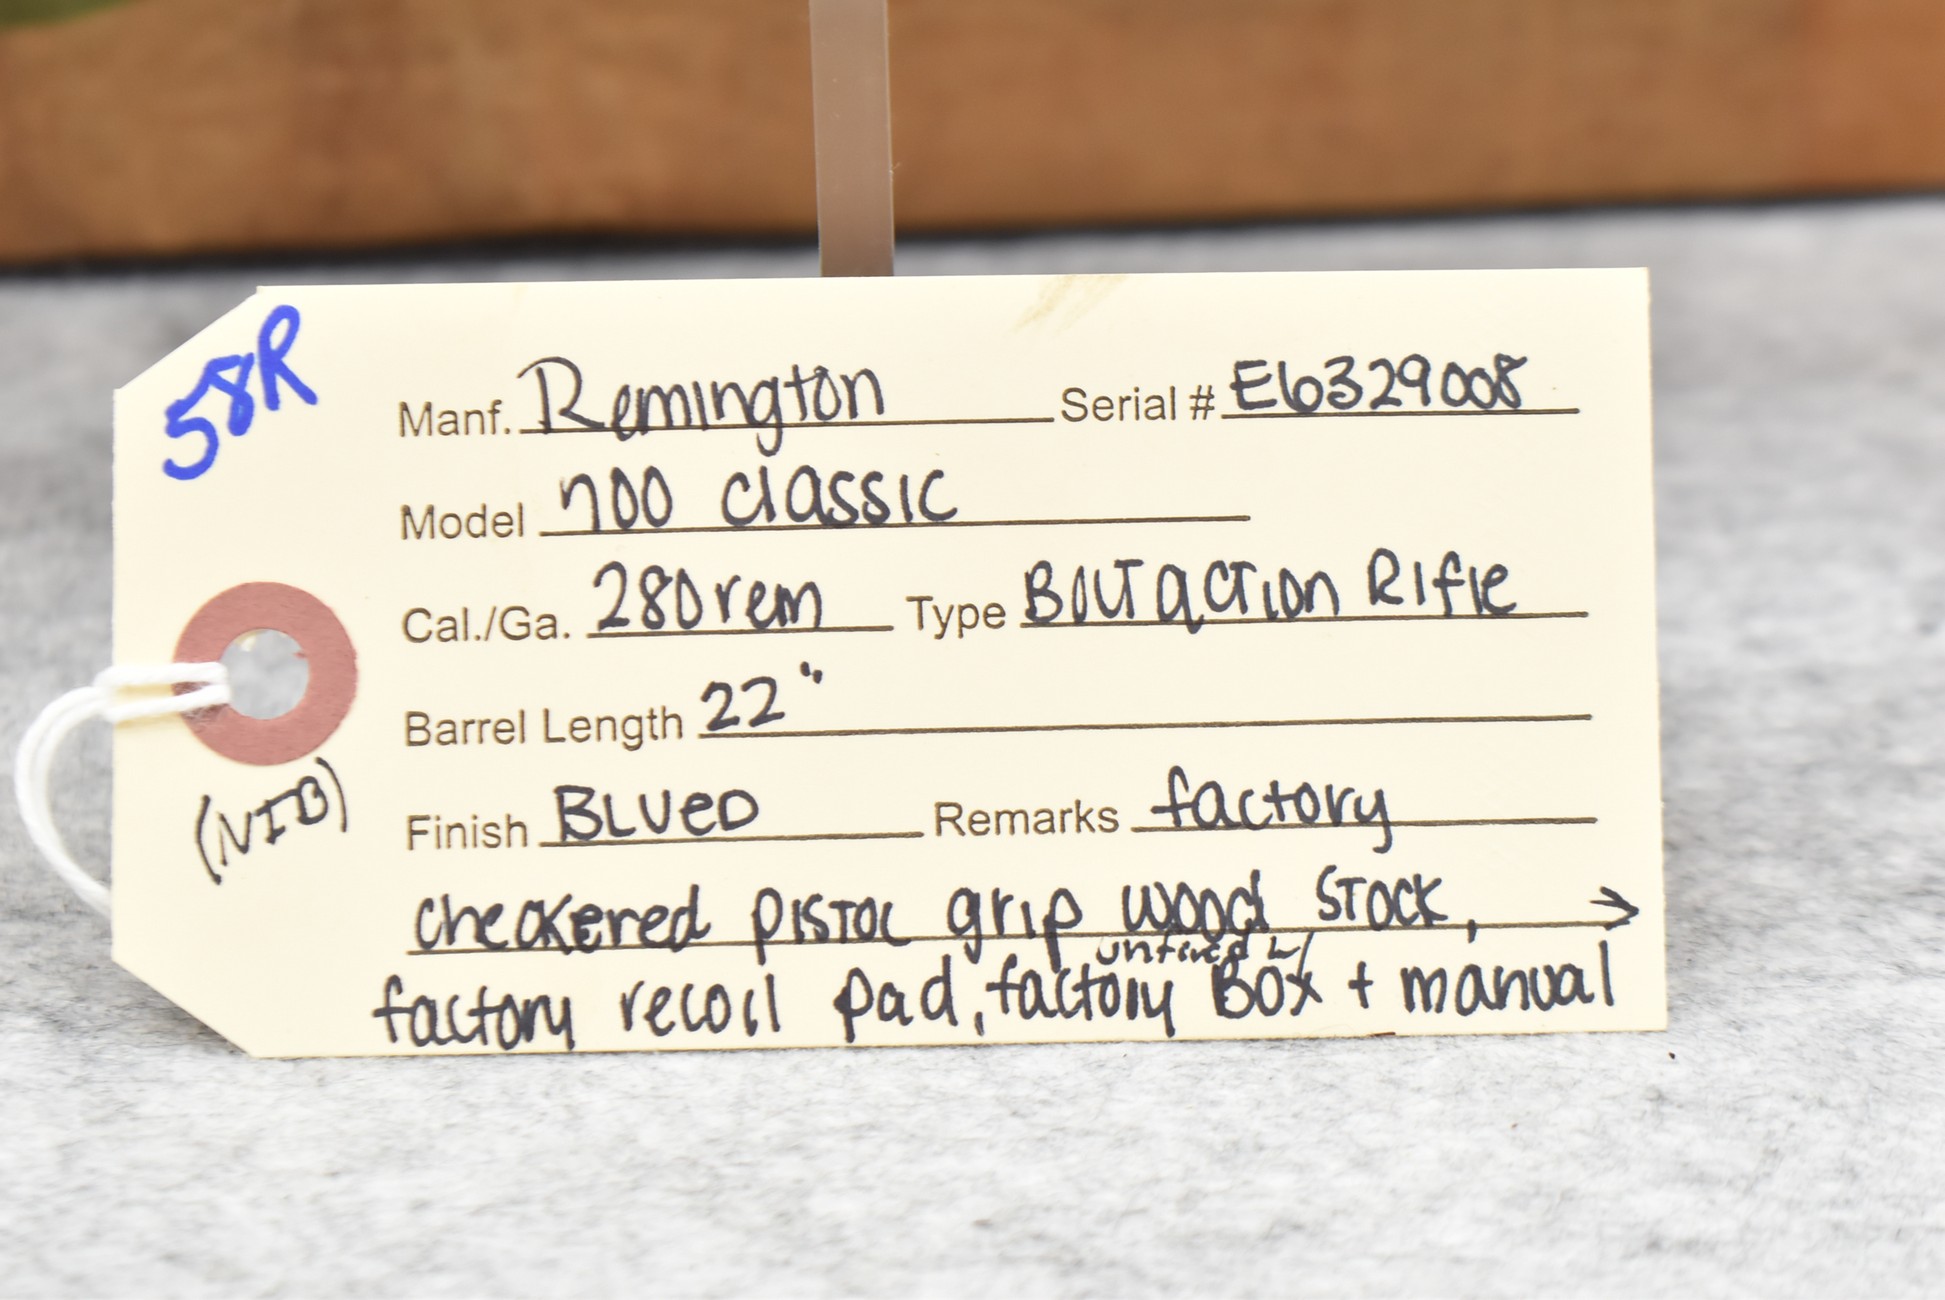 58R
Manf. Remington Serial # E6329008
Model 700 classic
Cal./Ga. 280 rem Type Bolt action Rifle
Barrel Length 22"
(NIB)
Finish BLUeD Remarks factory
checkered pistol grip wood stock, →
unfired w/
factory recoil pad, factory Box + manual